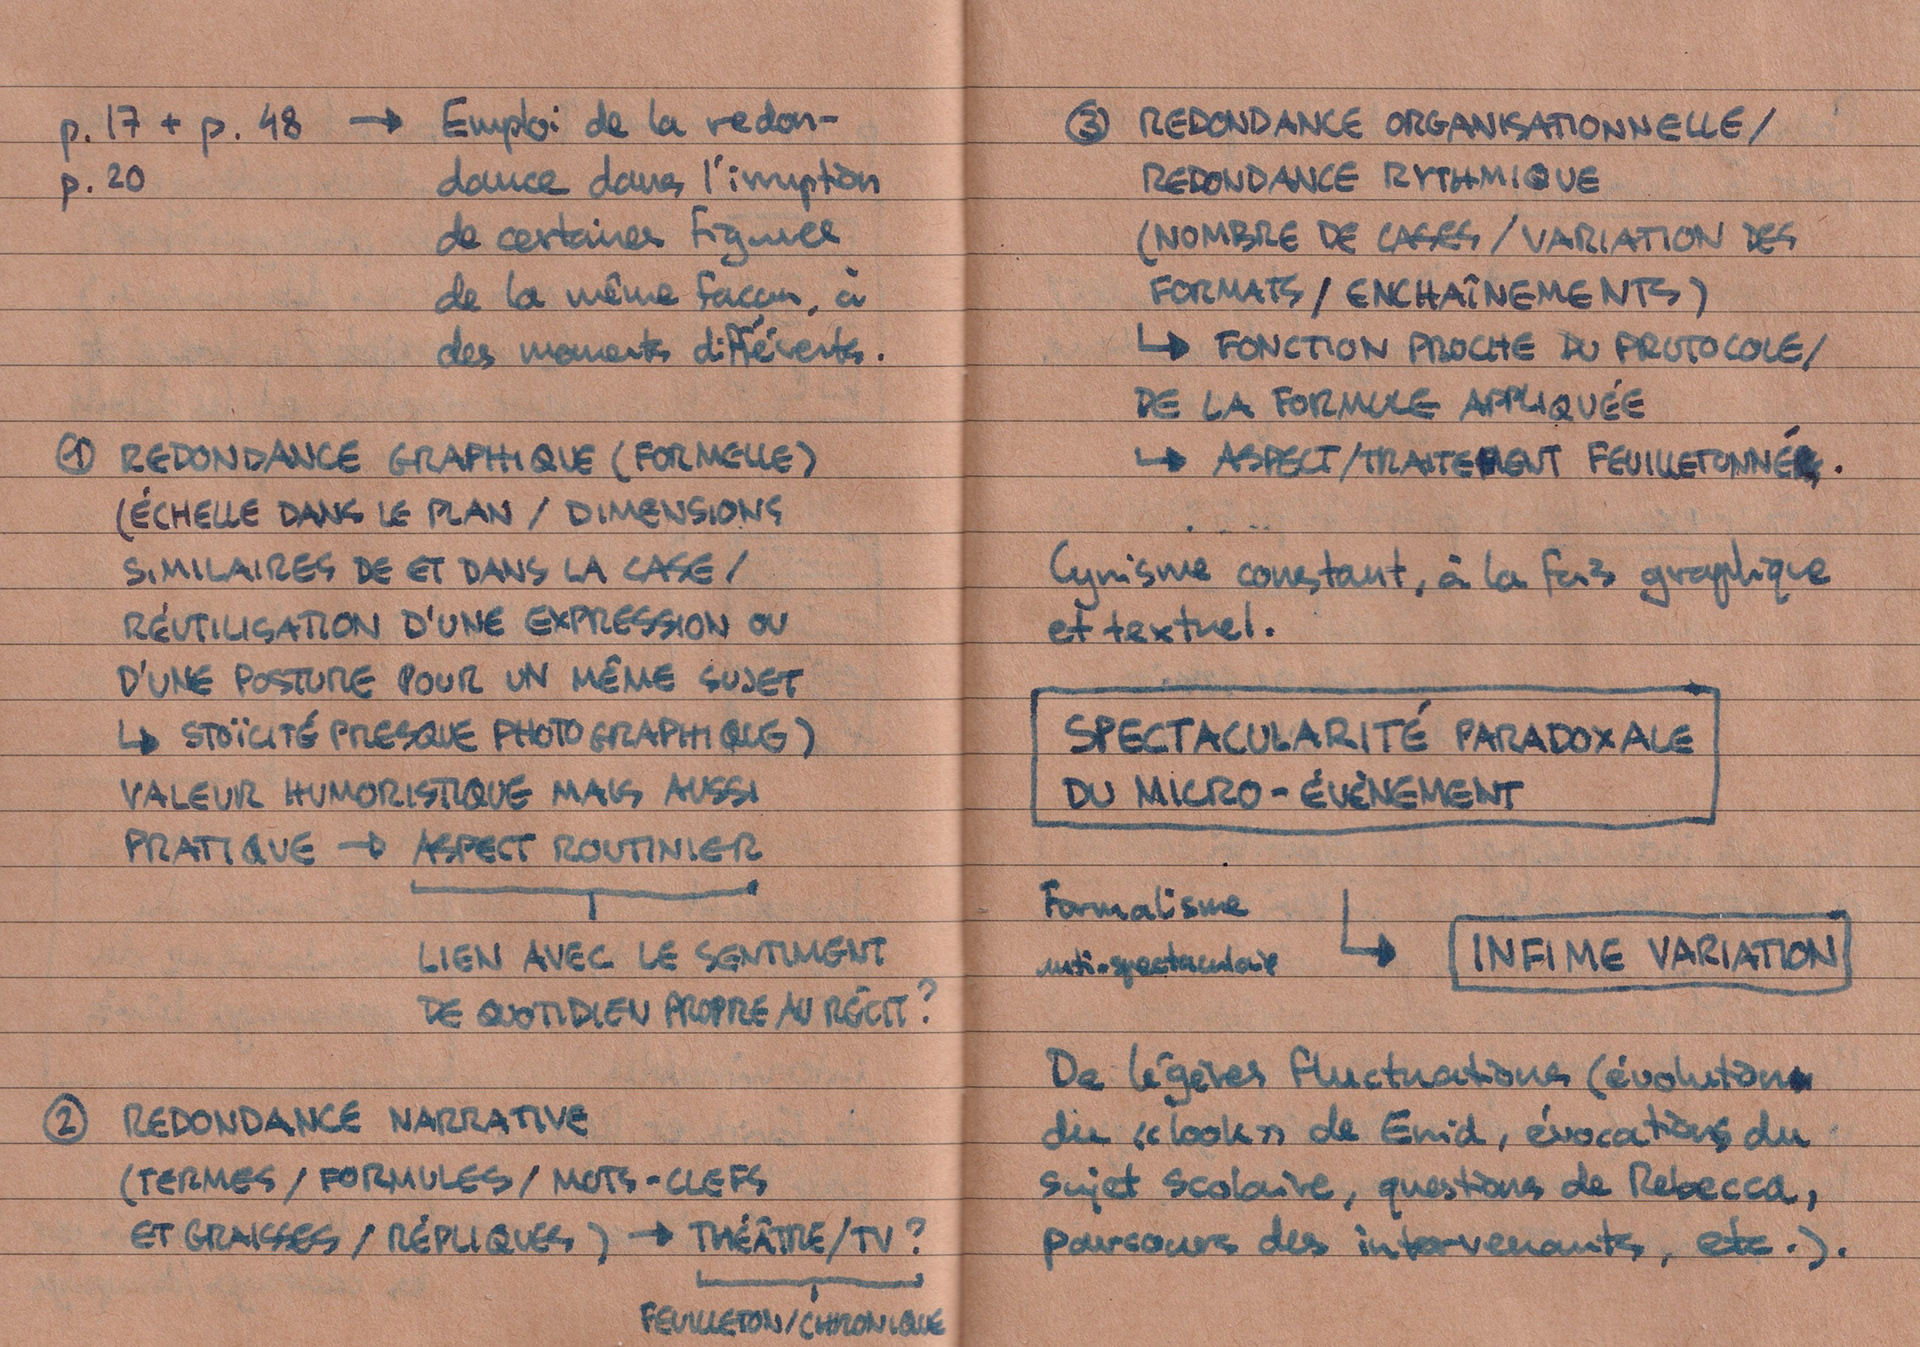 p. 17 + p. 48 → Emploi de la redon-
p. 20 dance dans l'irruption
de certaines figures
de la même façon, à
des moments différents.
① REDONDANCE GRAPHIQUE (FORMELLE)
(ÉCHELLE DANS LE PLAN / DIMENSIONS
SIMILAIRES DE ET DANS LA CASE /
RÉUTILISATION D'UNE EXPRESSION OU
D'UNE POSTURE POUR UN MÊME SUJET
↳ STOÏCITÉ PRESQUE PHOTOGRAPHIQUE)
VALEUR HUMORISTIQUE MAIS AUSSI
PRATIQUE → ASPECT ROUTINIER
LIEN AVEC LE SENTIMENT
DE QUOTIDIEN PROPRE AU RÉCIT ?
② REDONDANCE NARRATIVE
(TERMES / FORMULES / MOTS-CLEFS
ET GRAISSES / RÉPLIQUES) → THÉÂTRE/TV ?
FEUILLETON/CHRONIQUE
③ REDONDANCE ORGANISATIONNELLE /
REDONDANCE RYTHMIQUE
(NOMBRE DE CASES / VARIATION DES
FORMATS / ENCHAÎNEMENTS)
↳ FONCTION PROCHE DU PROTOCOLE /
DE LA FORMULE APPLIQUÉE
↳ ASPECT/TRAITEMENT FEUILLETONNÉ.
Cynisme constant, à la fois graphique
et textuel.
SPECTACULARITÉ PARADOXALE
DU MICRO-ÉVÉNEMENT
Formalisme
anti-spectaculaire
↳ INFIME VARIATION
De légères fluctuations (évolution
du «look» de Enid, évocations du
sujet scolaire, questions de Rebecca,
parcours des intervenants, etc.).